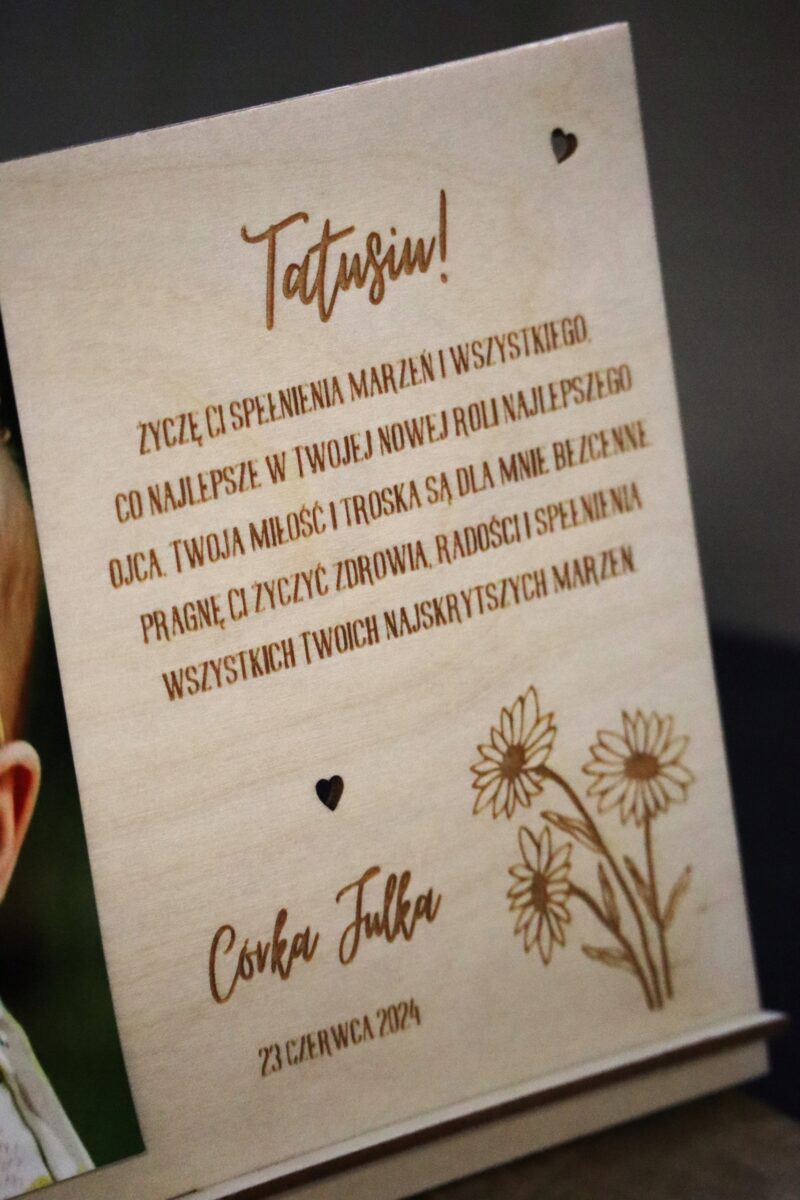 Tatusiu!
ŻYCZĘ CI SPEŁNIENIA MARZEŃ I WSZYSTKIEGO,
CO NAJLEPSZE W TWOJEJ NOWEJ ROLI NAJLEPSZEGO
OJCA. TWOJA MIŁOŚĆ I TROSKA SĄ DLA MNIE BEZCENNE.
PRAGNĘ CI ŻYCZYĆ ZDROWIA, RADOŚCI I SPEŁNIENIA
WSZYSTKICH TWOICH NAJSKRYTSZYCH MARZEŃ.
Córka Julka
23 CZERWCA 2024